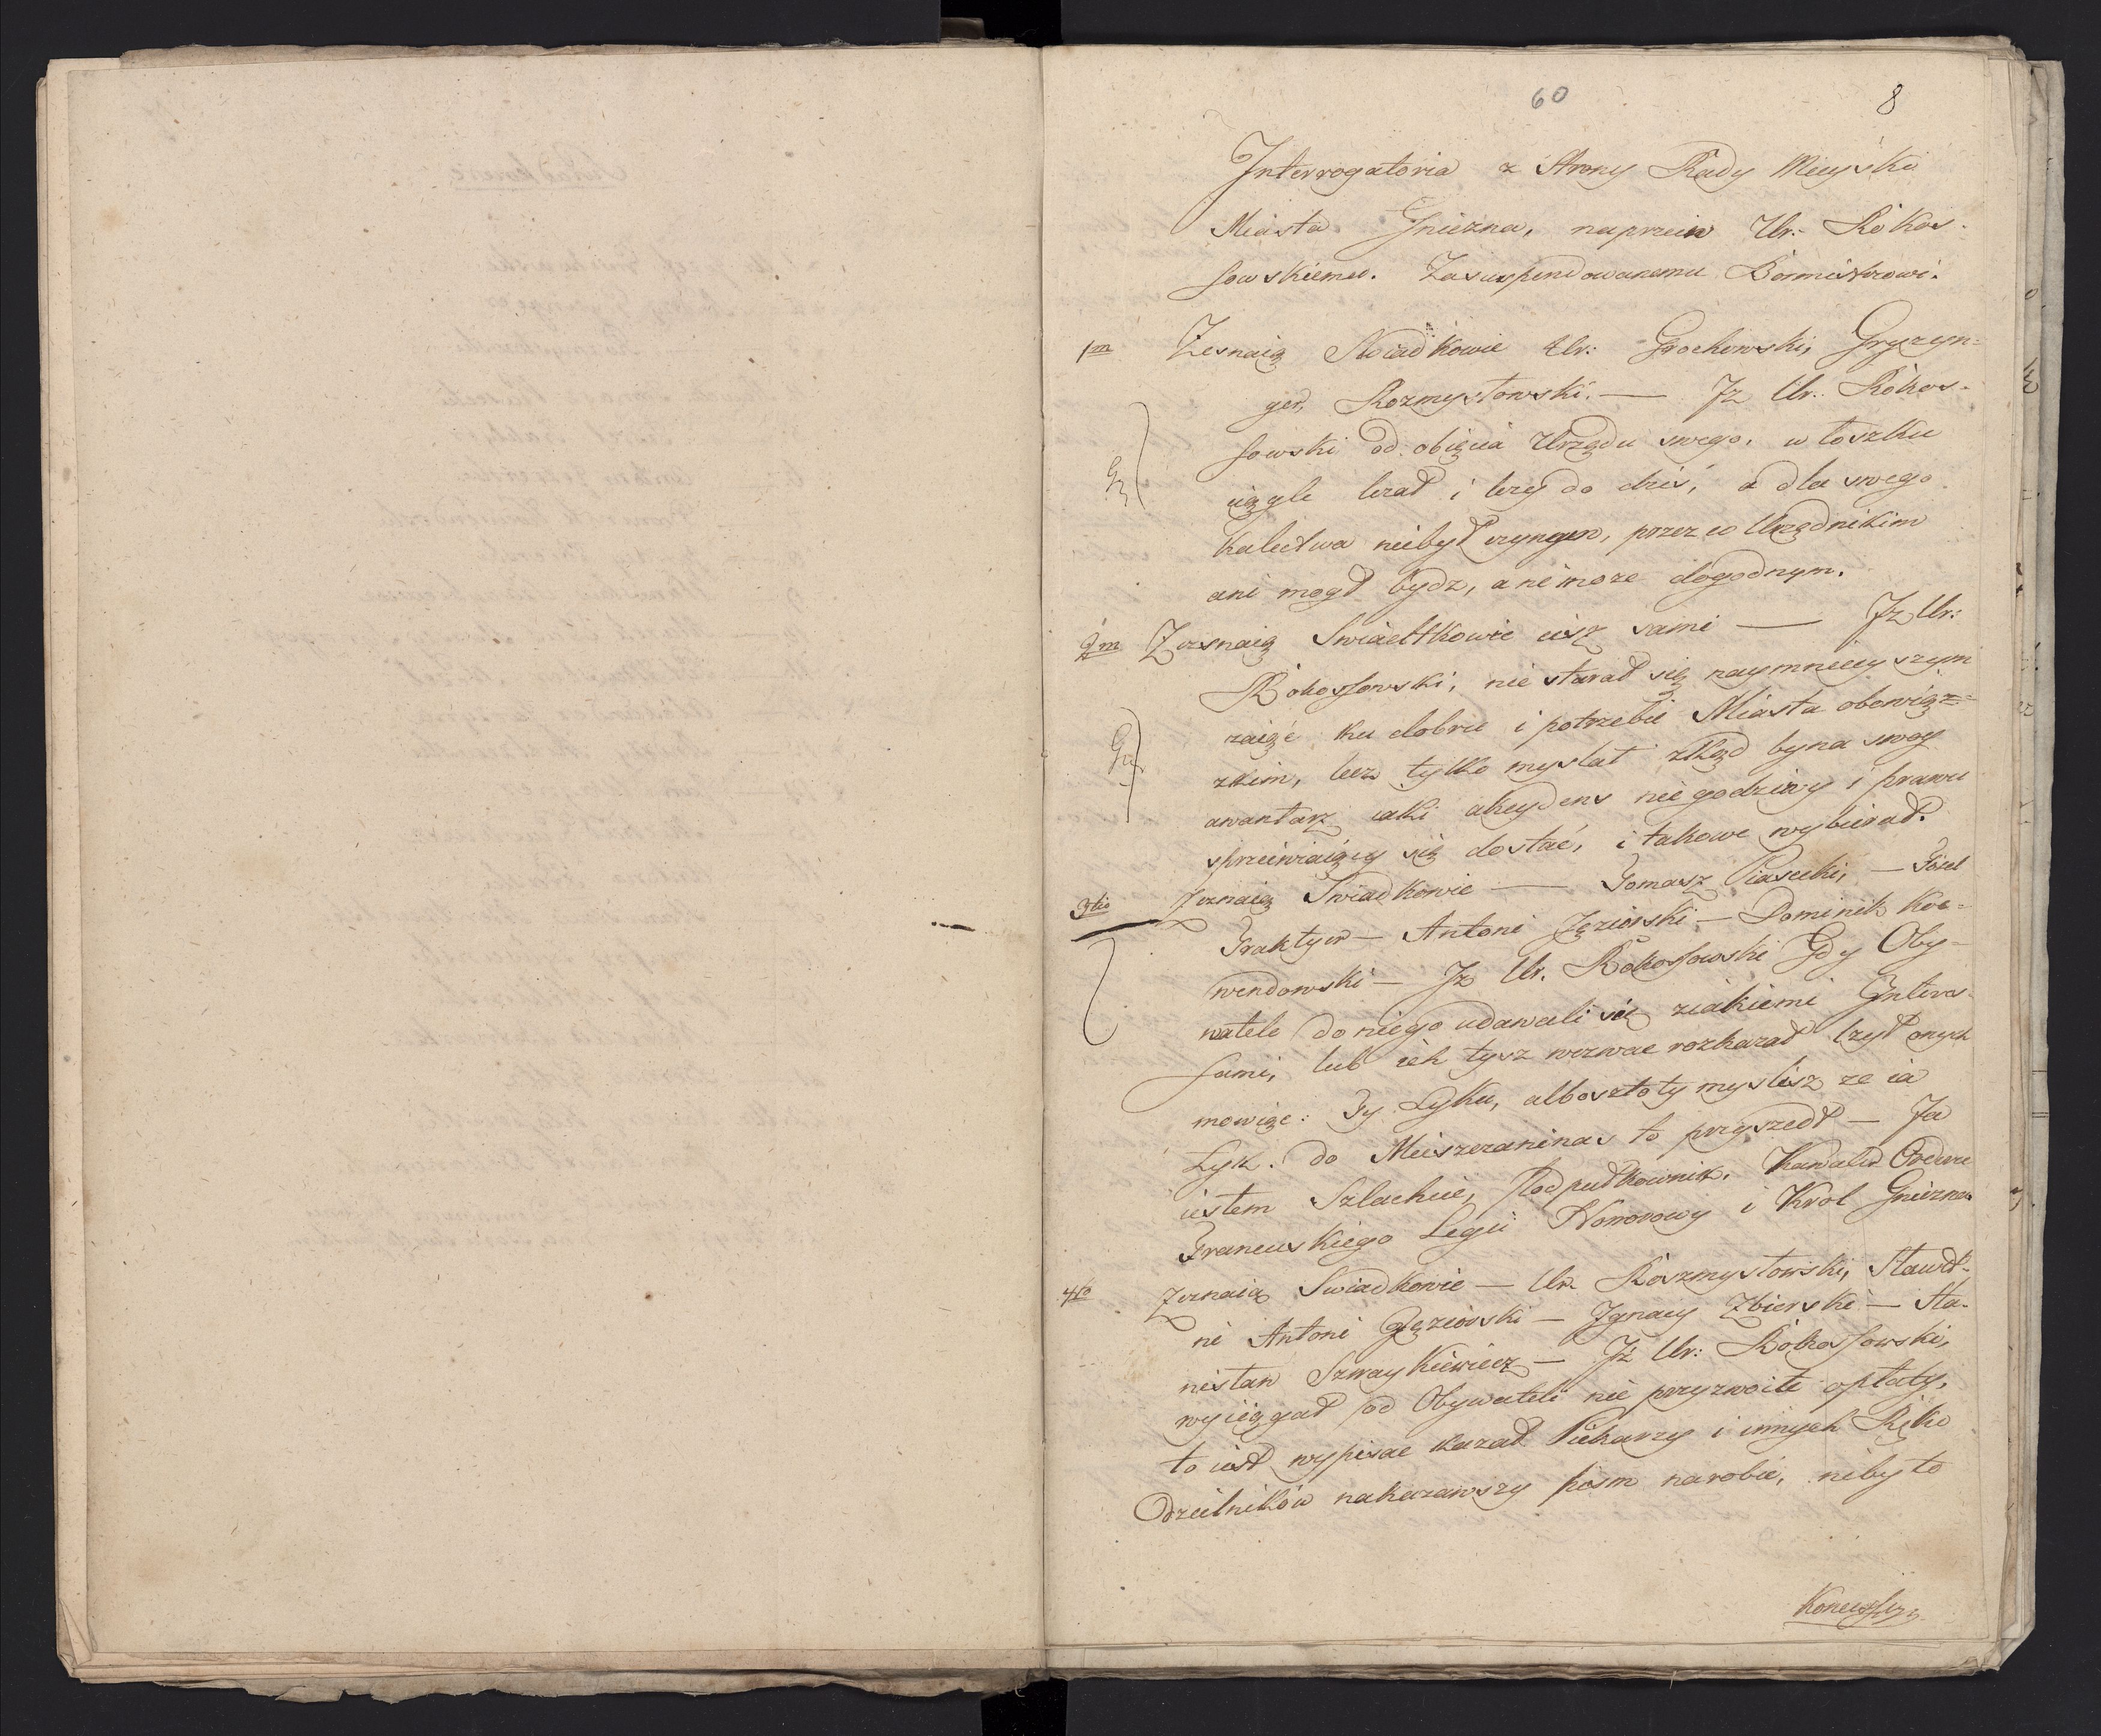 60
8
Interrogatoria z Strony Rady Mieyski
Miasta Gniezna, naprzeciw Ur: Rokos-
sowskiemu. Zasuspendowanemu Bormistrzowi.
1m Zesnaią Swiadkowie Ur: Grochowski, Gryzyn-
ger, Rozmysłowski. — Jz Ur. Rokos-
sowski od obięcia Urzędu swego, w łoszku
ciągle lezał i lezy do dziś, a dla swego
kalectwa niebył czynęm, przez co Urzędnikim
ani mogł bydz, ani moze dogodnym.
2m Zeznaią Swiadkowie cisz sami — Jz Ur:
Rokossowski, nie starał się naymnieyszym
zaiąć ku dobru i potrzebie Miasta obowiąz-
zkim, lecz tylko myslał zkąd by na swoy
awantarz iaki akcydens niegodziwy i prawu
sprzeciwiaiący się dostać, i takowe wybierał.
3tio Zeznaią Swiadkowie — Tomasz Piasecki, — Józef
Traktyer — Antoni Jęziorski — Dominik Koe-
wendowski — Jz Ur. Rokossowski Gdy Oby-
watele do niego udawali się ziakiemi Interes-
sami, lub ich tysz wezwac rozkazał lzył onych
mowiąc: Ty Łyku, albosz to ty myslisz ze ia
Łyk. do Mieszczaninas to przyszedł — Ja
iestem Szlachcic, Podpułkownik, Kawaler Orderu
Francuskiego Legii Honorowy i Krol Gniezna
4to Zeznaią Swiadkowie — Ur. Rozmysłowski, Sławet-
ni Antoni Jęziorski — Ignacy Zbierski — Sta-
nisław Szwaykiewicz — Jż Ur: Rokossowski,
wyciągał od Obywateli nie przyzwoite opłaty,
to iest wypisac kazał Piekarzy i innych Ręko
Dzielników nakazawszy pism narobic, niby to